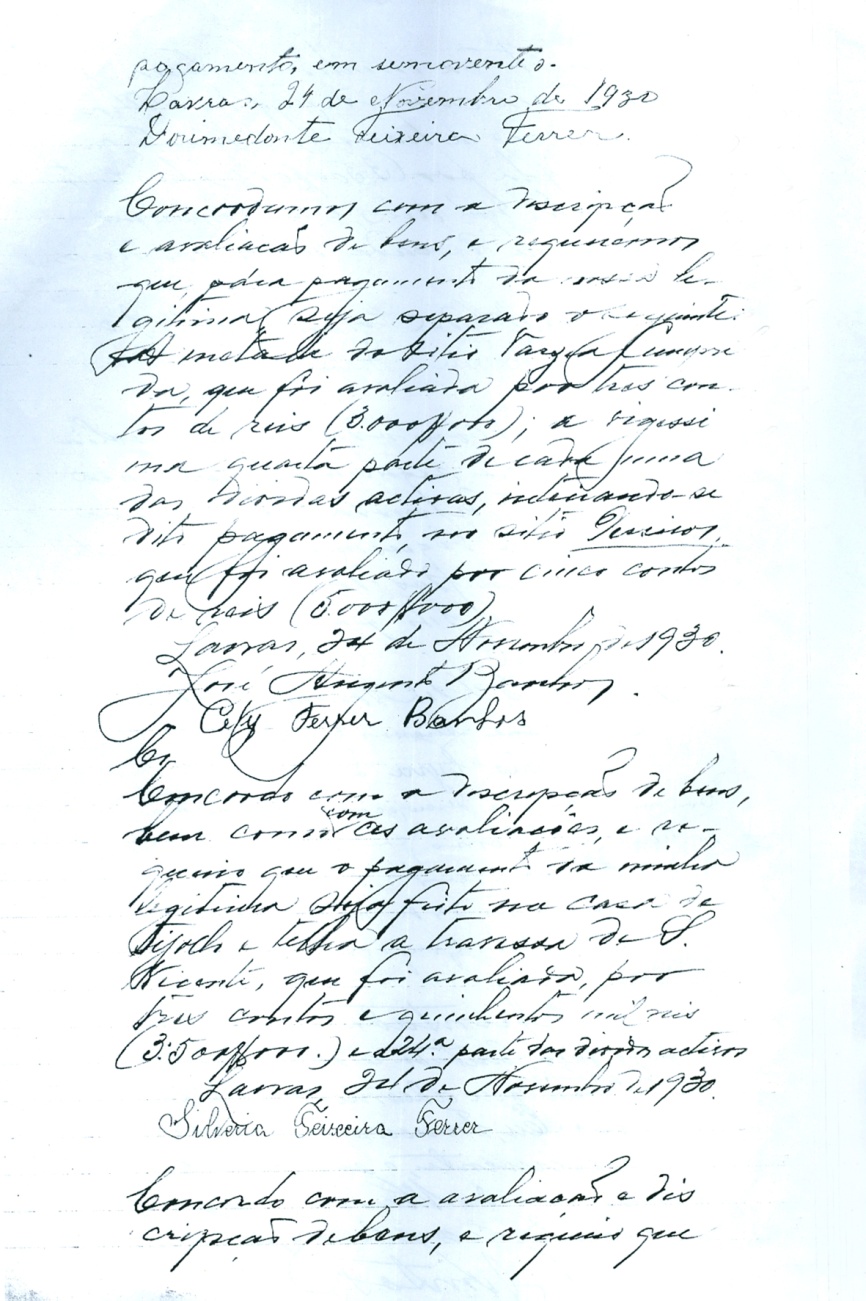 pagamento, em semoventes.
Lavras, 24 de Novembro de 1930
Dorimedonte Teixeira Ferrer.
Concordamos com a discripção
e avaliacão de bens, e requeremos
que, para pagamento da nossa le-
gitima, seja separado o seguinte:
metade do sitio Varzea Compri
da, que foi avaliada por tres con-
tos de reis (3.000$000); a vigessi
ma quarta parte de cada uma
das dividas activas, inteirando-se
dito pagamento, no sitio
que foi avaliado por cinco contos
de reis (5.000$000)
Lavras, 24 de Novembro de 1930.
José Augusto Banhos.
Cely Ferrer Banhos
Concordo com a discripção de bens,
bem como com as avaliacões, e re-
queiro que o pagamento da minha
legitima seja feito na casa de
tijolo e telha a travessa de S.
Vicente, que foi avaliada, por
tres contos e quinhentos mil reis
(3:500$000.) e a 24.ª parte das dividas activas
Lavras, 24 de Novembro de 1930.
Silveria Teixeira Ferrer
Concordo com a avaliacão e dis
cripção de bens, e requeiro que